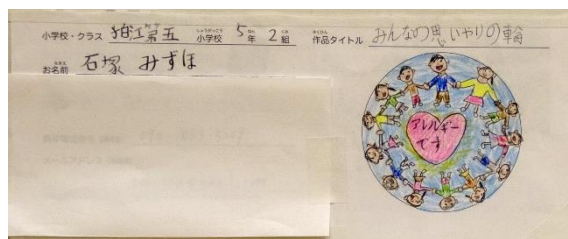 小学校・クラス 狛江第五 小学校 5年 2組 作品タイトル みんなの思いやりの輪
お名前 石塚 みずほ
アレルギー
です